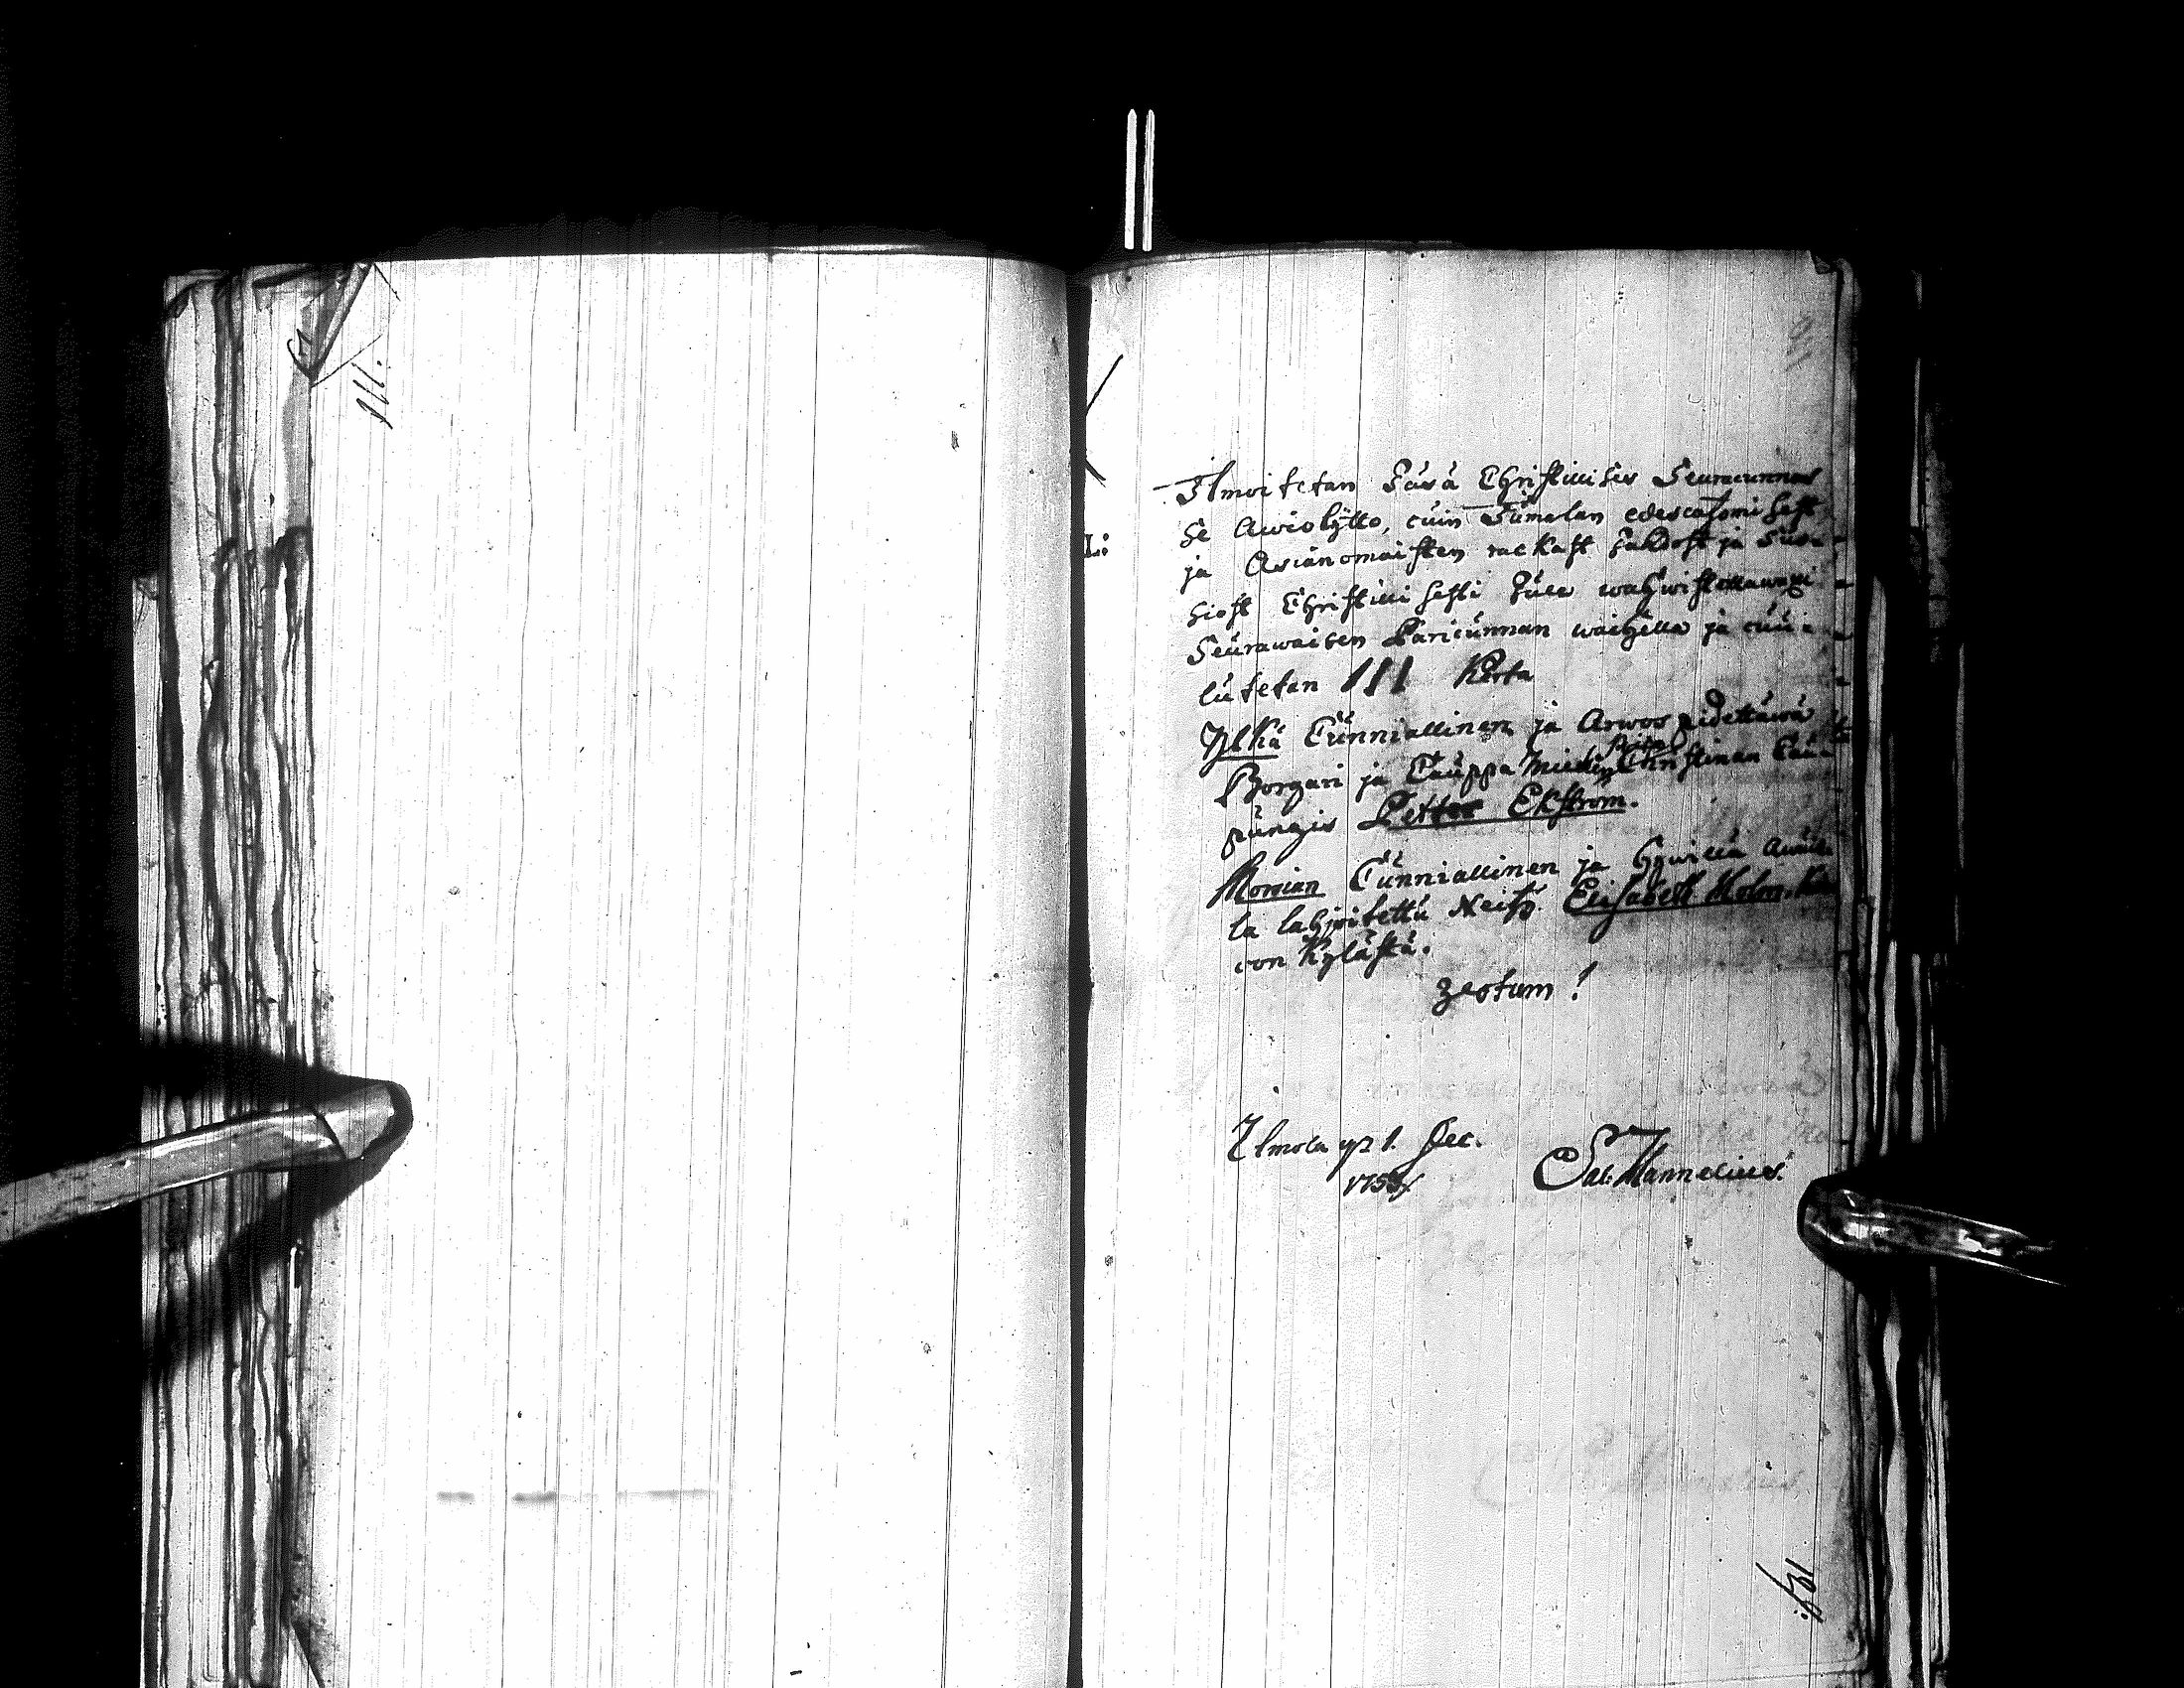 111.
L:
Ilmoitetan Täsä Christilises Seuracunnas
se Awiokytto, cuin Jumalan edescatzomisest
ja Asianomaisten rackast Tahdost ja Suo
siost Christilisesti Tule wahwistettawaxi
Seurawaisen Pariscunnan waihella ja cuu
lutetan III Kerta
Yljkä Cunniallinen ja Arwos pidettäwä
Borgari ja Cauppa Mies Christinan Cau
pungis Petter Ekström.
Morsian Cunniallinen ja Hywillä Awuil
la lahjoitettu Neitz. Elisabeth Holm
con Kylästä.
zeotum!
Ilmola ÿ 1. Dec.
1753
Sal: Hannelius.